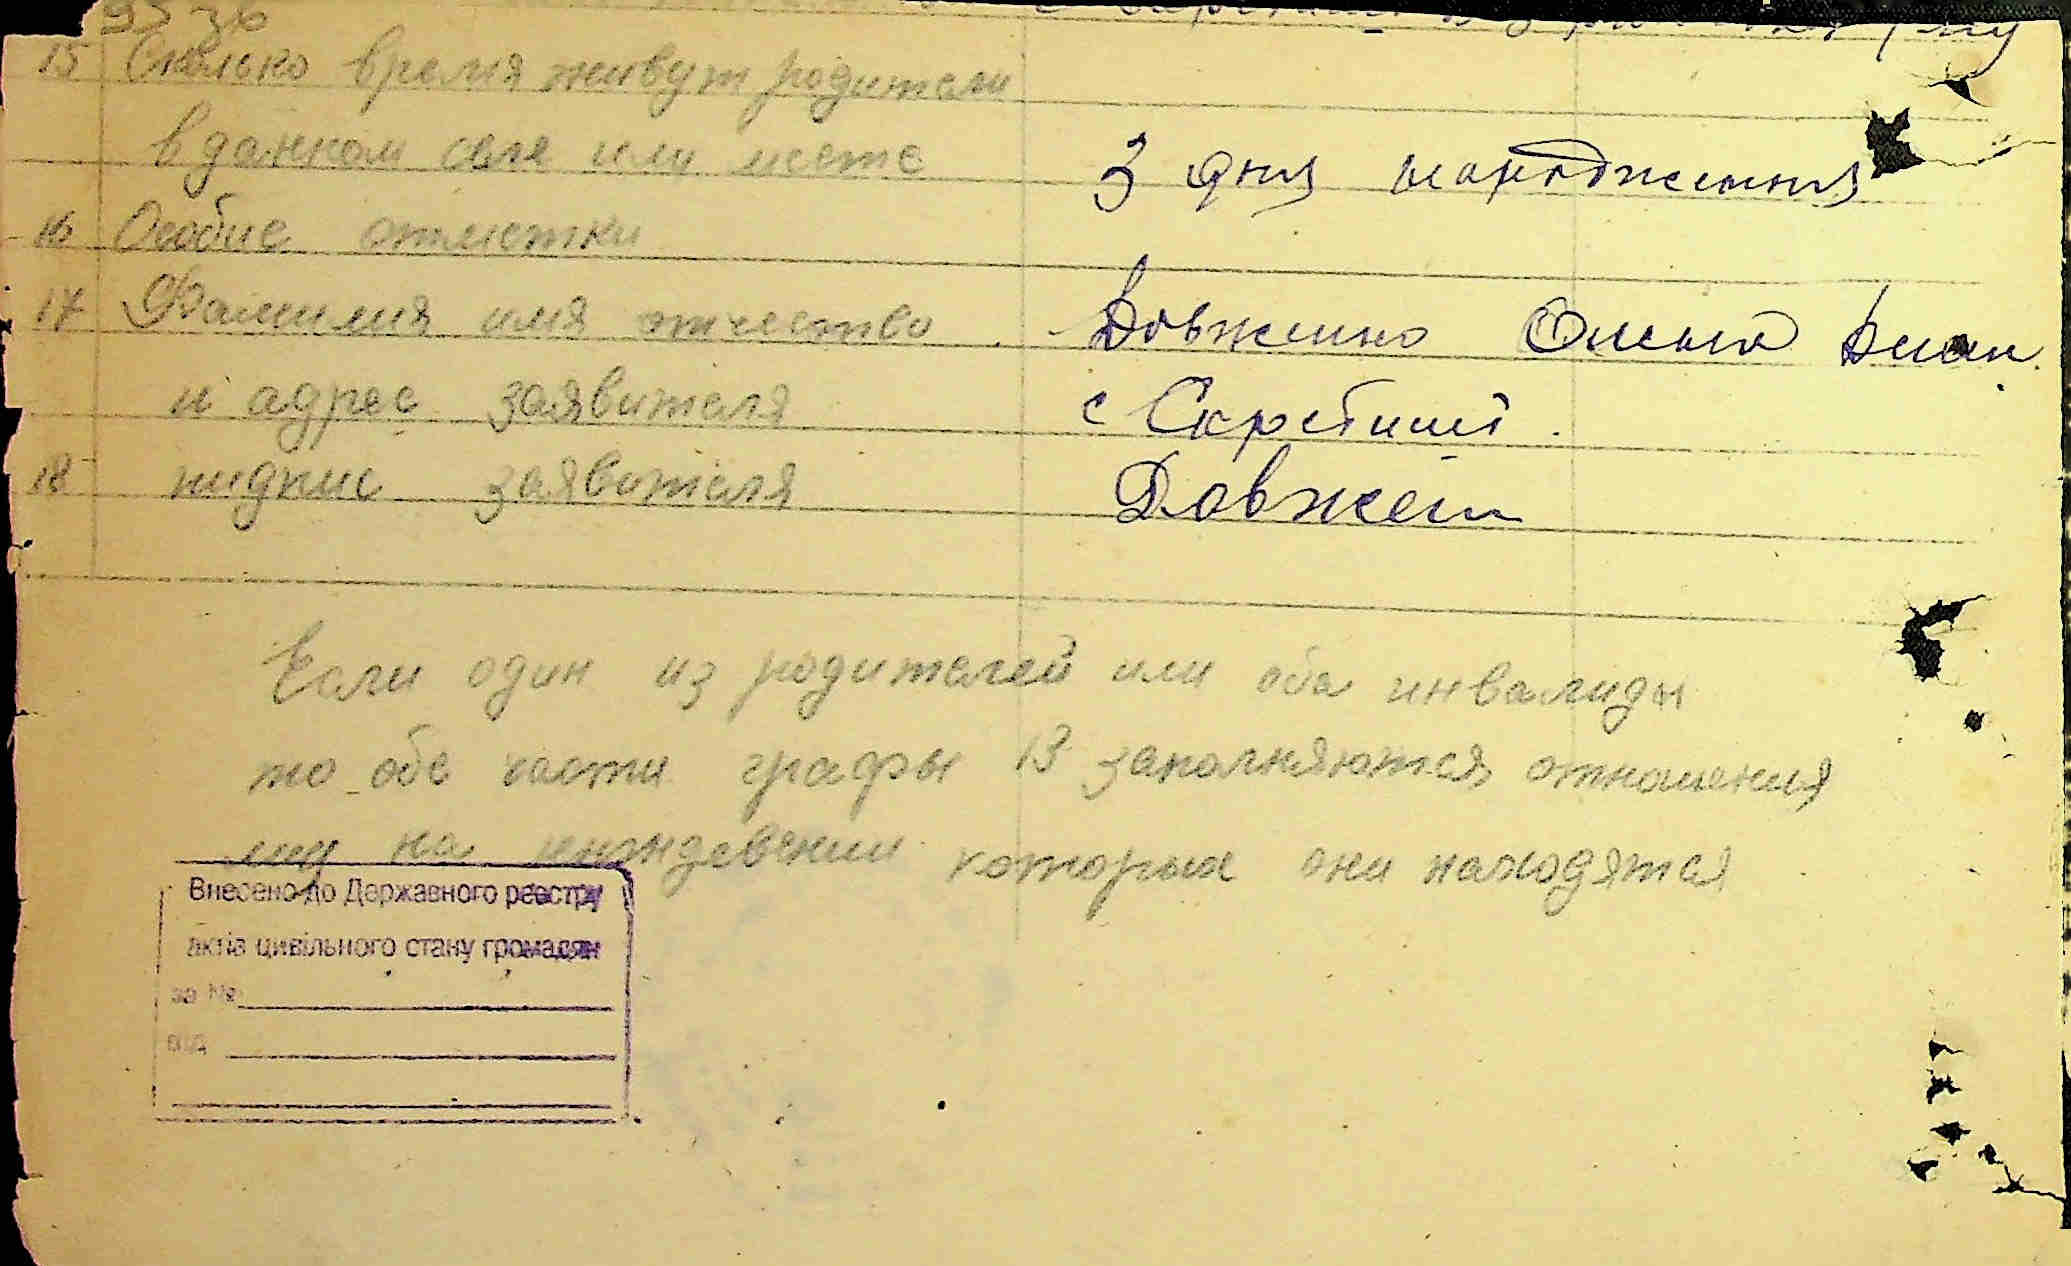 15 Сколько время живут родители
в данном селе или месте 3 дня народження
16 Особие отметки
17 Фамилия имя отчество Довженко
и адрес заявителя с
18 пидпис заявителя Довжен
Если один из родителей или оба инвалиды
то обе части графы 13 заполняются отношения
лиц на иждевении которых они находятся
Внесено до Державного реєстру
актів цивільного стану громадян
за №
від